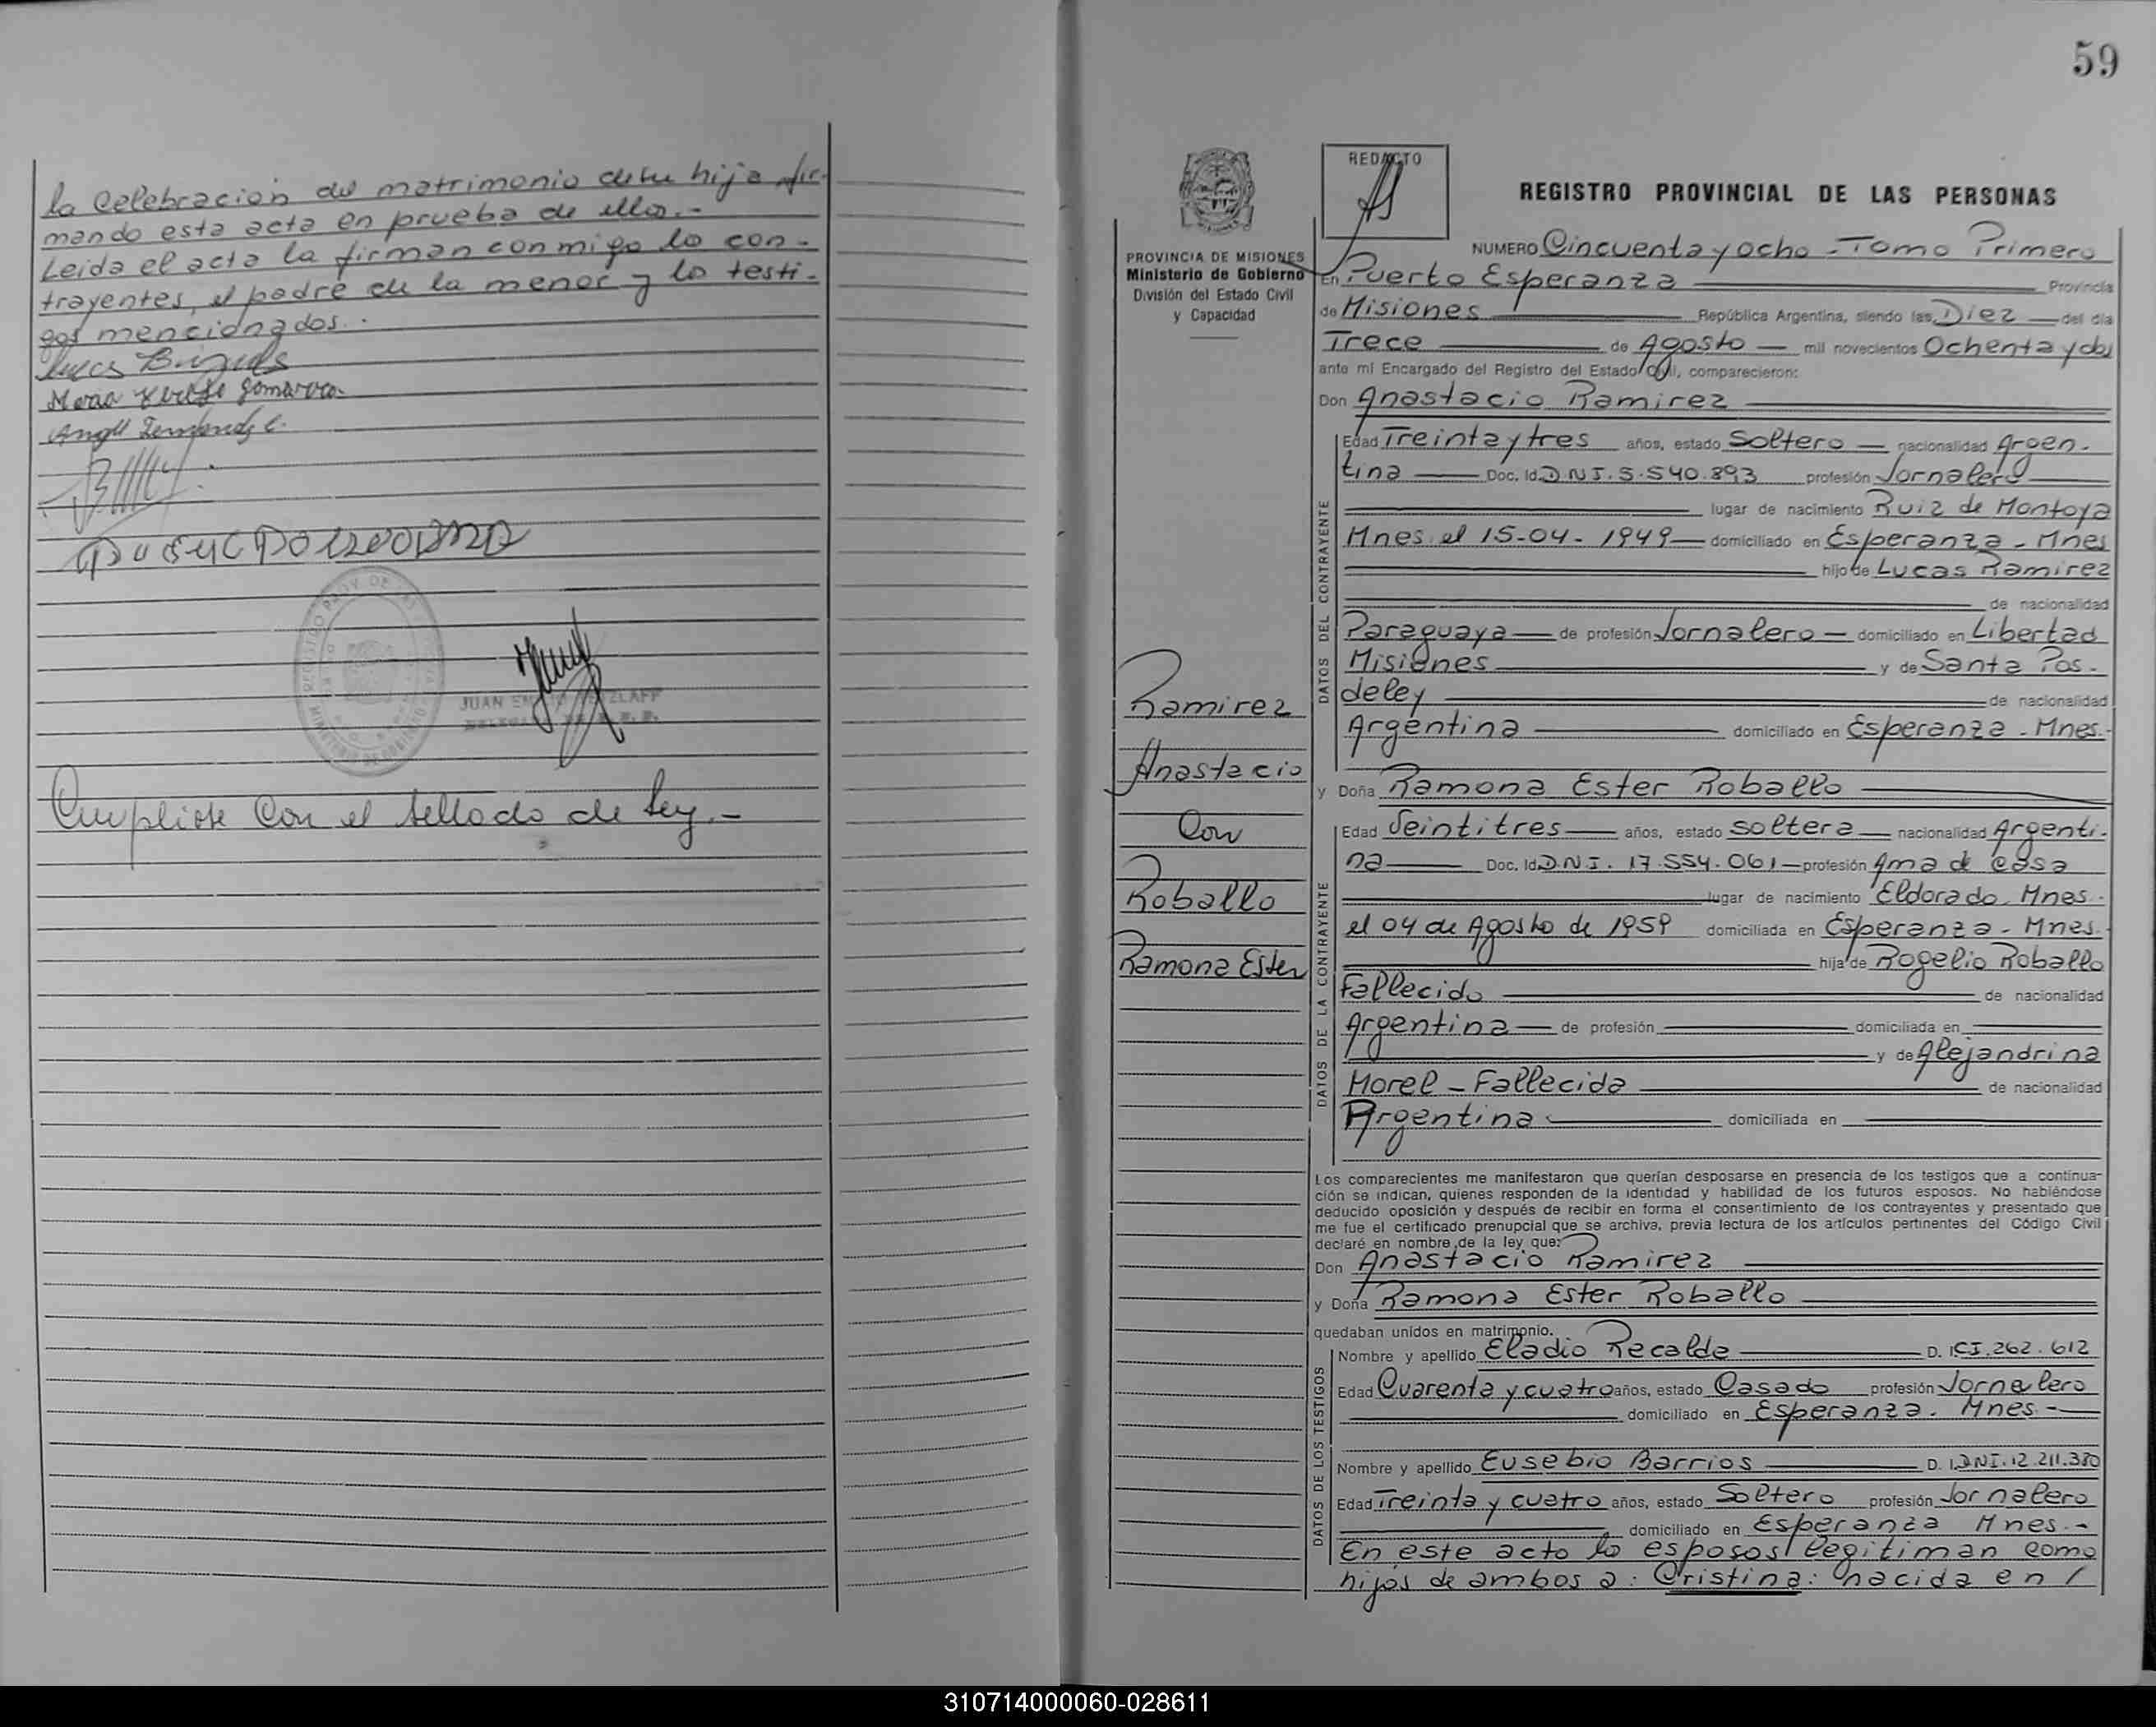 la Celebración del matrimonio de su hija fir-
mando esta acta en prueba de ello.-
Leida el acta la firman conmigo lo con-
trayentes, el padre de la menor y lo testi-
gos mencionados.-
Lucas
Maria Gomarro
Angel Fernandez C.
JUAN
Cumpliose Con el sellado de ley.-
59
PROVINCIA DE MISIONES
Ministerio de Gobierno
División del Estado Civil
y Capacidad
Ramirez
Anastacio
Con
Roballo
Ramona Ester
REDACTO
REGISTRO PROVINCIAL DE LAS PERSONAS
NUMERO Cincuenta y ocho - Tomo Primero
En Puerto Esperanza Provincia
de Misiones República Argentina, siendo las Diez del día
Trece de Agosto mil novecientos Ochenta y dos
ante mi Encargado del Registro del Estado Civil, comparecieron:
Don Anastacio Ramirez
DATOS DEL CONTRAYENTE
Edad Treinta y tres años, estado Soltero nacionalidad Argen-
tina Doc. Id. D.N.I. 5.540.893 profesión Jornalero
lugar de nacimiento Ruiz de Montoya
Mnes. el 15-04-1949 domiciliado en Esperanza - Mnes
hijo de Lucas Ramirez
de nacionalidad
Paraguaya de profesión Jornalero domiciliado en Libertad
Misiones y de Santa Pos-
deley de nacionalidad
Argentina domiciliado en Esperanza - Mnes.
y Doña Ramona Ester Roballo
DATOS DE LA CONTRAYENTE
Edad Veintitres años, estado soltera nacionalidad Argenti-
na Doc. Id. D.N.I. 17.554.061 profesión Ama de Casa
lugar de nacimiento Eldorado Mnes.
el 04 de Agosto de 1959 domiciliada en Esperanza - Mnes.
hija de Rogelio Roballo
Fallecido de nacionalidad
Argentina de profesión domiciliada en
y de Alejandrina
Morel - Fallecida de nacionalidad
Argentina domiciliada en
Los comparecientes me manifestaron que querían desposarse en presencia de los testigos que a continua-
ción se indican, quienes responden de la identidad y habilidad de los futuros esposos. No habiéndose
deducido oposición y después de recibir en forma el consentimiento de los contrayentes y presentado que
me fue el certificado prenupcial que se archiva, previa lectura de los artículos pertinentes del Código Civil
declaré en nombre de la ley que:
Don Anastacio Ramirez
y Doña Ramona Ester Roballo
quedaban unidos en matrimonio.
DATOS DE LOS TESTIGOS
Nombre y apellido Eladio Recalde D. I CI. 262.612
Edad Cuarenta y cuatro años, estado Casado profesión Jornalero
domiciliado en Esperanza. Mnes.-
Nombre y apellido Eusebio Barrios D. I. DNI. 12.211.380
Edad Treinta y cuatro años, estado Soltero profesión Jornalero
domiciliado en Esperanza Mnes.-
En este acto lo esposos legitiman como
hijos de ambos a: Cristina: nacida en
310714000060-028611